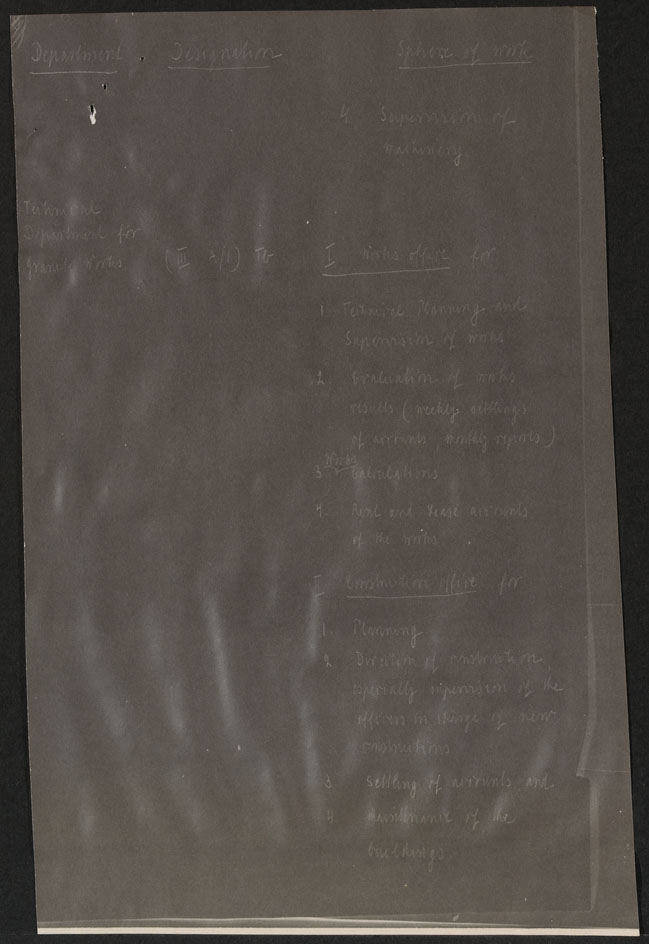 Department Designation Sphere of work
4. Supervision of
machinery
Technical
Department for
Granite Works (III A/1) Tb I Works office for
1. Technical Planning and
Supervision of works
2. Evaluation of works
results (weekly settlings
of accounts, monthly reports)
Works
3 Calculations
4. Rent and lease accounts
of the works
I Construction office for
1. Planning
2. Direction of construction,
especially supervision of the
officers in charge of new
constructions
3. Settling of accounts and
4. Maintenance of the
buildings.